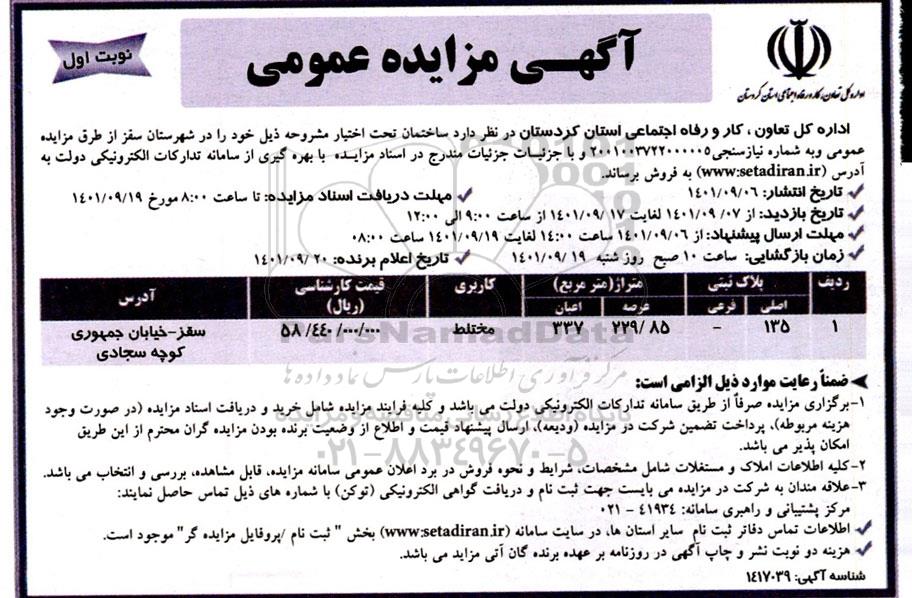 اداره کل تعاون، کار و رفاه اجتماعی استان کردستان
نوبت اول
آگهی مزایده عمومی
اداره کل تعاون ، کار و رفاه اجتماعی استان کردستان در نظر دارد ساختمان تحت اختیار مشروحه ذیل خود را در شهرستان سقز از طرق مزایده
عمومی وبه شماره نیازسنجی ۲۰۰۱۰۰۳۷۲۲۰۰۰۰۰۵ و با جزئیات جزئیات مندرج در اسناد مزایده با بهره گیری از سامانه تدارکات الکترونیکی دولت به
آدرس (www:setadiran.ir) به فروش برساند.
تاریخ انتشار: ۱۴۰۱/۰۹/۰۶
مهلت دریافت اسناد مزایده: تا ساعت ۸:۰۰ مورخ ۱۴۰۱/۰۹/۱۹
تاریخ بازدید: از ۰۷/ ۱۴۰۱/۰۹ لغایت ۱۷ /۱۴۰۱/۰۹ از ساعت ۹:۰۰ الی ۱۲:۰۰
مهلت ارسال پیشنهاد: از ۱۴۰۱/۰۹/۰۶ ساعت ۱۴:۰۰ لغایت ۱۴۰۱/۰۹/۱۹ ساعت ۰۸:۰۰
زمان بازگشایی: ساعت ۱۰ صبح روز شنبه ۱۹ /۱۴۰۱/۰۹
تاریخ اعلام برنده: ۲۰ /۱۴۰۱/۰۹
ردیف پلاک ثبتی متراژ(متر مربع) کاربری قیمت کارشناسی (ریال) آدرس
اصلی فرعی عرصه اعیان
۱ ۱۳۵ - ۲۲۹/۸۵ ۳۳۷ مختلط ۵۸/۴۴۰/۰۰۰/۰۰۰ سقز-خیابان جمهوری
کوچه سجادی
ParsNamadData
مرکز فرآوری اطلاعات پارس نماد داده ها
پایگاه اطلاع رسانی مناقصه و مزایده
۰۲۱-۸۸۳۴۹۶۷۰-۵
ضمناً رعایت موارد ذیل الزامی است:
۱-برگزاری مزایده صرفاً از طریق سامانه تدارکات الکترونیکی دولت می باشد و کلیه فرایند مزایده شامل خرید و دریافت اسناد مزایده (در صورت وجود
هزینه مربوطه)، پرداخت تضمین شرکت در مزایده (ودیعه)، ارسال پیشنهاد قیمت و اطلاع از وضعیت برنده بودن مزایده گران محترم از این طریق
امکان پذیر می باشد.
۲-کلیه اطلاعات املاک و مستغلات شامل مشخصات، شرایط و نحوه فروش در برد اعلان عمومی سامانه مزایده، قابل مشاهده، بررسی و انتخاب می باشد.
۳-علاقه مندان به شرکت در مزایده می بایست جهت ثبت نام و دریافت گواهی الکترونیکی (توکن) با شماره های ذیل تماس حاصل نمایند:
مرکز پشتیبانی و راهبری سامانه: ۴۱۹۳۴ - ۰۲۱
اطلاعات تماس دفاتر ثبت نام سایر استان ها، در سایت سامانه (www:setadiran.ir) بخش " ثبت نام /پروفایل مزایده گر" موجود است.
هزینه دو نوبت نشر و چاپ آگهی در روزنامه بر عهده برنده گان آتی مزاید می باشد.
شناسه آگهی: ۱۴۱۷۰۳۹